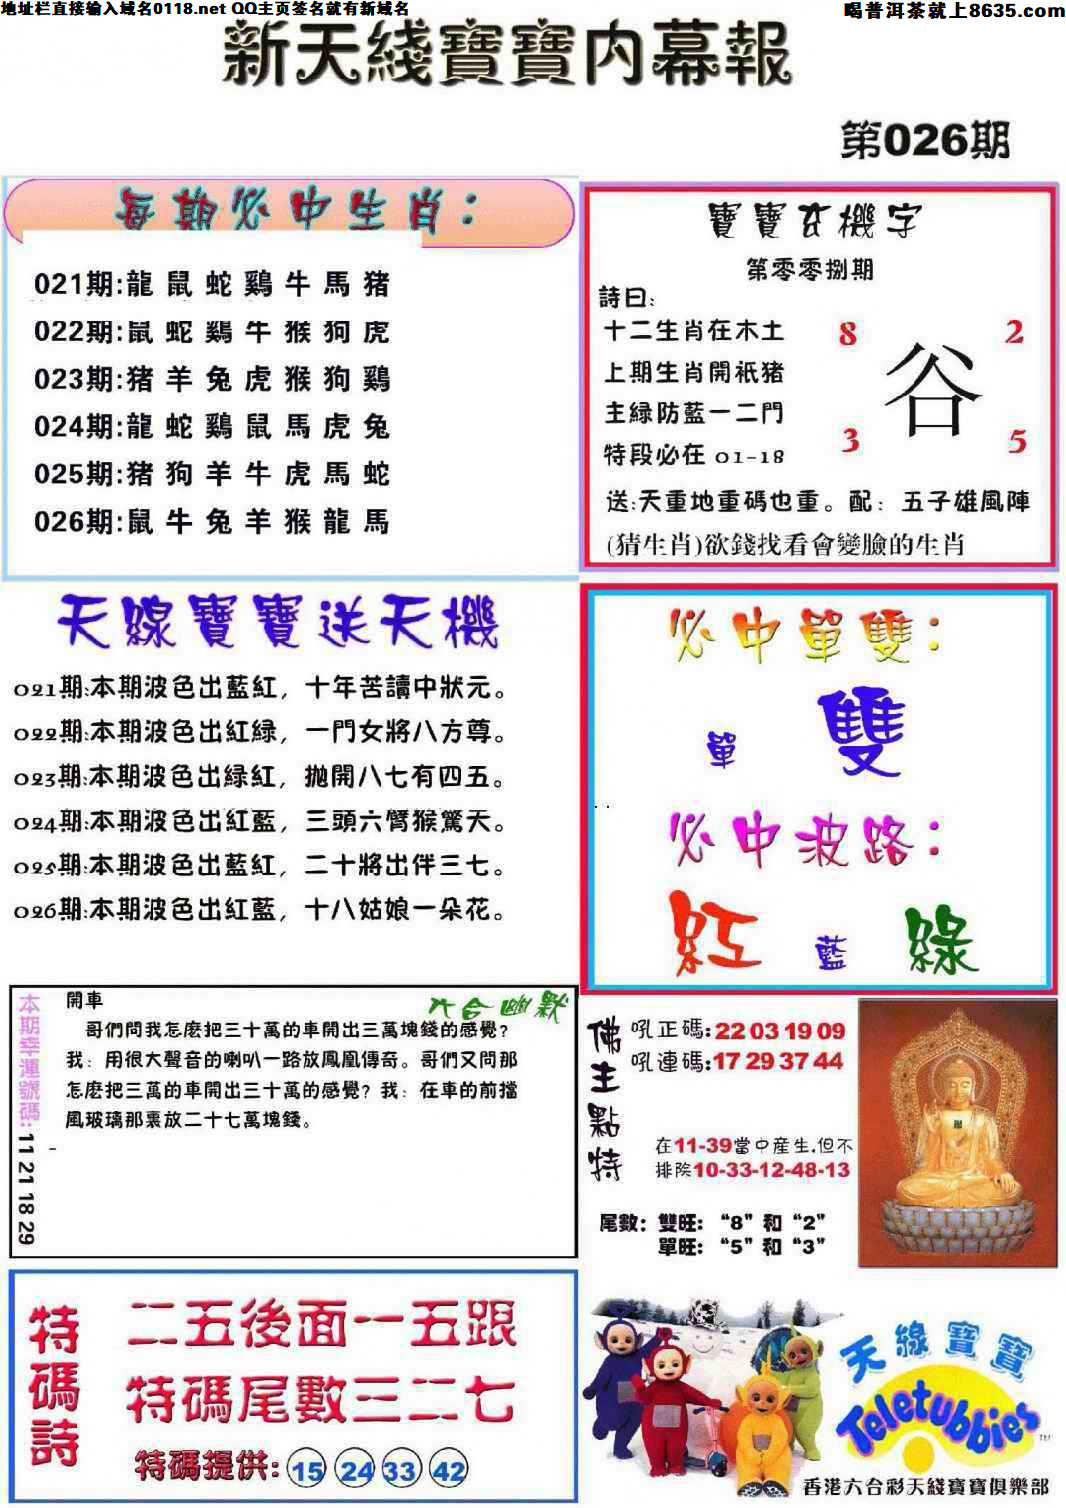 地址栏直接输入域名0118.net QQ主页签名就有新域名
喝普洱茶就上8635.com
新天綫寶寶内幕報
第026期
每期必中生肖：
021期:龍 鼠 蛇 鷄 牛 馬 猪
022期:鼠 蛇 鷄 牛 猴 狗 虎
023期:猪 羊 兔 虎 猴 狗 鷄
024期:龍 蛇 鷄 鼠 馬 虎 兔
025期:猪 狗 羊 牛 虎 馬 蛇
026期:鼠 牛 兔 羊 猴 龍 馬
寶寶玄機字
第零零捌期
詩曰：
十二生肖在木土
上期生肖開衹猪
主緑防藍一二門
特段必在 01-18
8 2
谷
3 5
送:天重地重碼也重。配：五子雄風陣
(猜生肖)欲錢找看會變臉的生肖
天線寶寶送天機
021期:本期波色出藍紅，十年苦讀中狀元。
022期:本期波色出紅緑，一門女將八方尊。
023期:本期波色出緑紅，抛開八七有四五。
024期:本期波色出紅藍，三頭六臂猴驚天。
025期:本期波色出藍紅，二十將出伴三七。
026期:本期波色出紅藍，十八姑娘一朵花。
必中單雙：
單 雙
必中波路：
紅 藍 綠
本期幸運號碼: 11 21 18 29
六合幽默
開車
哥們問我怎麽把三十萬的車開出三萬塊錢的感覺?
我：用很大聲音的喇叭一路放鳳凰傳奇。哥們又問那
怎麽把三萬的車開出三十萬的感覺？我：在車的前擋
風玻璃那裏放二十七萬塊錢。
佛主點特
吼正碼:22 03 19 09
吼連碼:17 29 37 44
在11-39當中産生.但不
排除10-33-12-48-13
尾數：雙旺：“8”和“2”
單旺：“5”和“3”
特碼詩
二五後面一五跟
特碼尾數三二七
特碼提供: 15 24 33 42
天線寶寶
Teletubbies
TM
香港六合彩天綫寶寶俱樂部